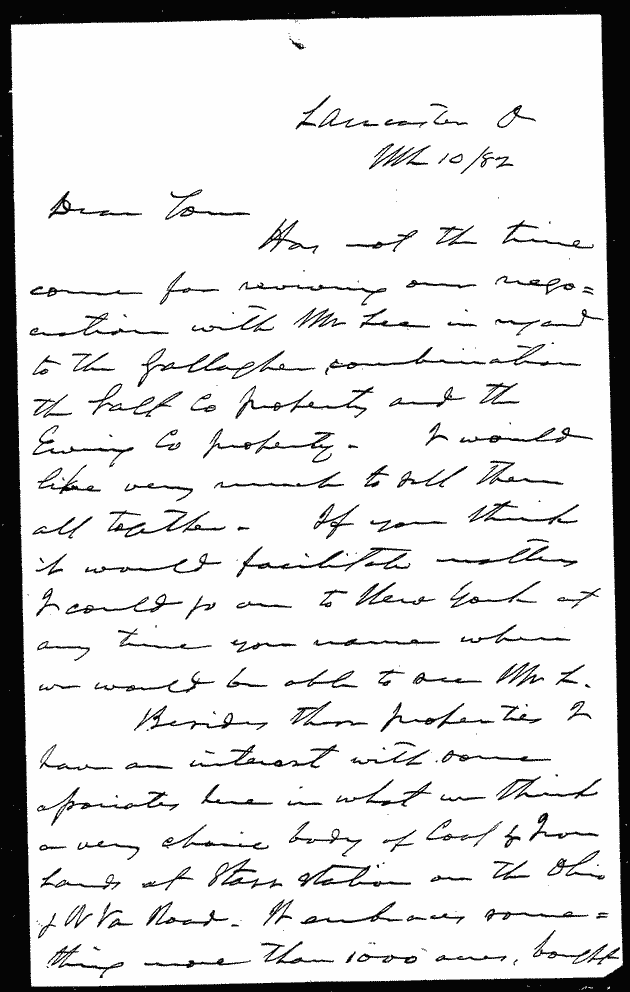 Lancaster O
Mh 10/82
Dear Tom
Has not the time
come for reviving our nego=
ciation with Mr Lee in regard
to the Gallagher combination
the Salt Co property and the
Ewing Co property. I would
like very much to sell them
all together. If you think
it would facilitate matters
I could go on to New York at
any time you name when
we would be able to see Mr L.
Besides these properties I
have an interest with some
associates here in what we think
a very choice body of Coal & Iron
Lands at Starr station on the Ohio
& W Va Road. It embraces some=
thing more than 1000 acres, bought